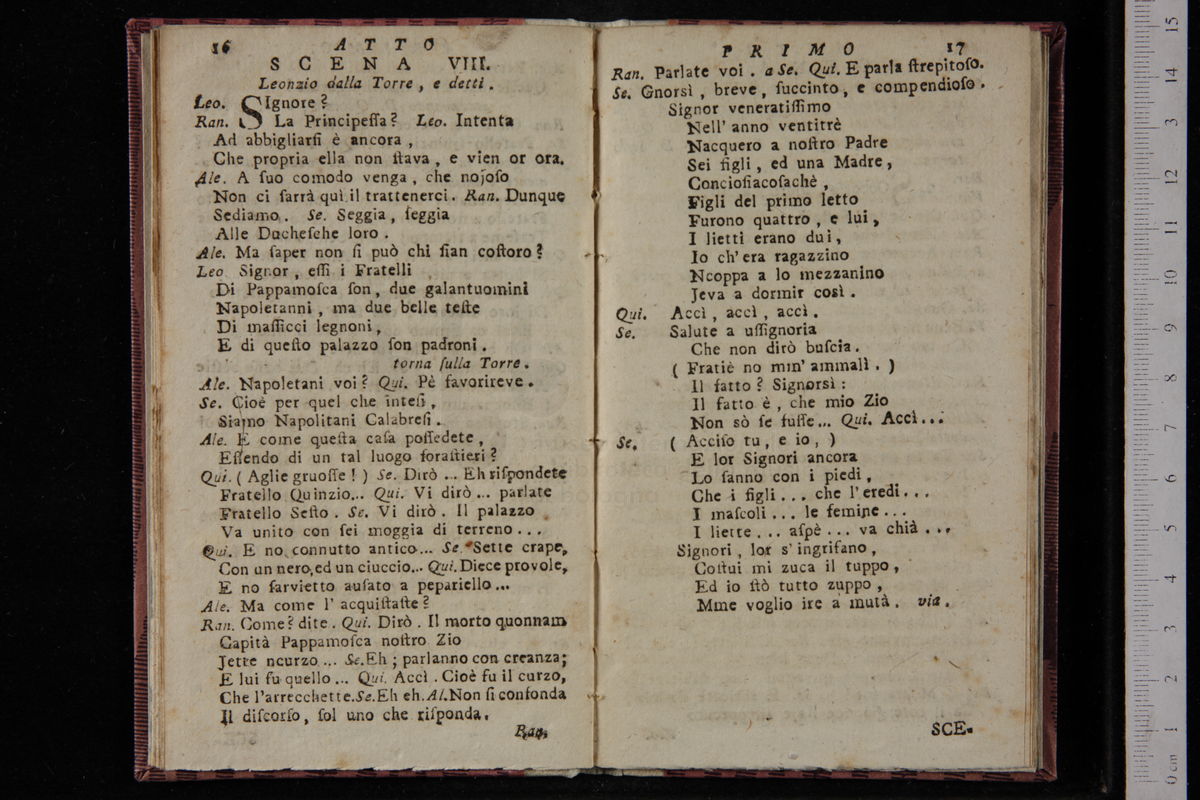 16 ATTO
SCENA VIII.
Leonzio dalla Torre, e detti.
Leo. SIgnore?
Ran. La Principeſſa? Leo. Intenta
Ad abbigliarſi è ancora,
Che propria ella non ſtava, e vien or ora.
Ale. A ſuo comodo venga, che nojoſo
Non ci ſarrà quì il trattenerci. Ran. Dunque
Sediamo. Se. Seggia, ſeggia
Alle Ducheſche loro.
Ale. Ma ſaper non ſi può chi ſian coſtoro?
Leo Signor, eſſi i Fratelli
Di Pappamoſca ſon, due galantuomini
Napoletanni, ma due belle teſte
Di maſſicci legnoni,
E di queſto palazzo ſon padroni.
torna ſulla Torre.
Ale. Napoletani voi? Qui. Pè favorireve.
Se. Cioè per quel che inteſi,
Siamo Napolitani Calabreſi.
Ale. E come queſta caſa poſſedete,
Eſſendo di un tal luogo foraſtieri?
Qui. (Aglie gruoſſe!) Se. Dirò ... Eh riſpondete
Fratello Quinzio... Qui. Vi dirò... parlate
Fratello Seſto. Se. Vi dirò. Il palazzo
Va unito con ſei moggia di terreno...
Qui. E no connutto antico... Se. Sette crape,
Con un nero, ed un ciuccio... Qui. Diece provole,
E no ſarvietto auſato a pepariello...
Ale. Ma come l' acquiſtaſte?
Ran. Come? dite. Qui. Dirò. Il morto quonnam
Capità Pappamoſca noſtro Zio
Jette ncurzo... Se. Eh; parlanno con creanza;
E lui fu quello... Qui. Accì. Cioè fu il curzo,
Che l'arrecchette. Se. Eh eh. Al. Non ſi confonda
Il diſcorſo, ſol uno che riſponda.
Ran.
PRIMO 17
Ran. Parlate voi. a Se. Qui. E parla ſtrepitoſo.
Se. Gnorsì, breve, ſuccinto, e compendioſo.
Signor veneratiſſimo
Nell' anno ventitrè
Nacquero a noſtro Padre
Sei figli, ed una Madre,
Concioſiacoſachè,
Figli del primo letto
Furono quattro, e lui,
I lietti erano dui,
Io ch'era ragazzino
Ncoppa a lo mezzanino
Jeva a dormir così.
Qui. Accì, accì, accì.
Se. Salute a uſſignoria
Che non dirò buſcìa.
(Fratiè no mm' ammalì.)
Il fatto? Signorsì:
Il fatto è, che mio Zio
Non sò ſe fuſſe... Qui. Accì...
Se. (Acciſo tu, e io,)
E lor Signori ancora
Lo ſanno con i piedi,
Che i figli... che l'eredi...
I maſcoli... le femine...
I liette... aſpè... va chià...
Signori, lor s' ingrifano,
Coſtui mi zuca il tuppo,
Ed io ſtò tutto zuppo,
Mme voglio ire a mutà. via.
SCE-
15
14
13
12
11
10
9
8
7
6
5
4
3
2
1
0 cm